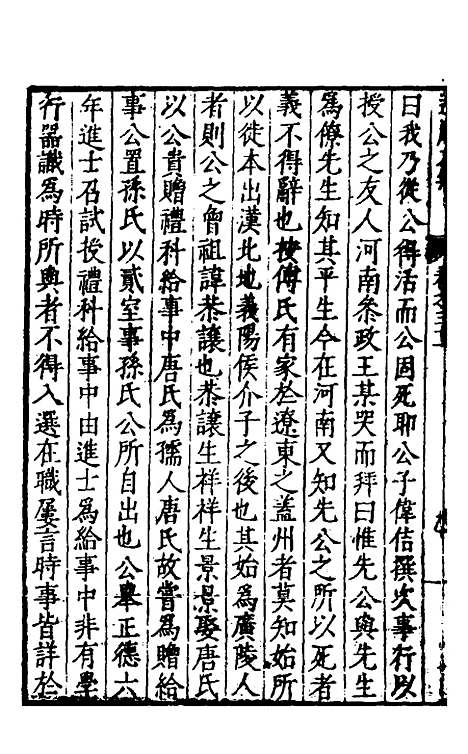 曰我乃從公得活而公固死耶公子偉佶撰次事行以
授公之友人河南叅政王某哭而拜曰惟先公與先生
爲僚先生知其平生今在河南又知先公之所以死者
義不得辭也按傅氏有家於遼東之蓋州者莫知始所
以徙本出漢北地義陽侯介子之後也其始爲廣陵人
者則公之曾祖諱恭讓也恭讓生祥祥生景景娶唐氏
以公貴贈禮科給事中唐氏爲孺人唐氏故嘗爲贈給
事公置孫氏以貳室事孫氏公所自出也公舉正德六
年進士召試授禮科給事中由進士爲給事中非有學
行器識爲時所與者不得入選在職屢言時事皆詳於